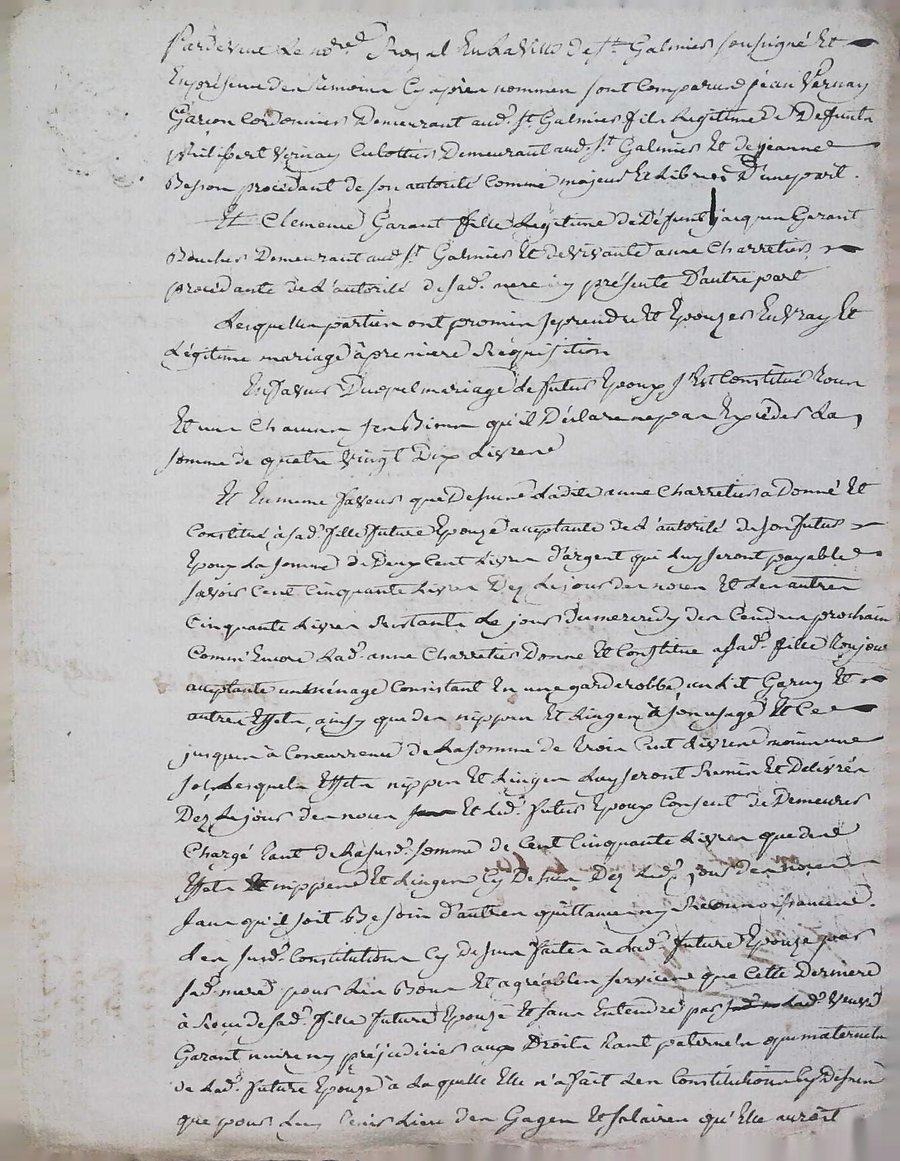 Pardevant Le no.re Royal En La Ville de st. Galmier soussigné Et
En présence des temoins Cy après nommés sont Comparus jean Vernay
Garçon Cordonnier Demeurant aud. st. Galmier fils Legitime De Defunts
philipert Vernay Culottier Demeurant aud. st. Galmier Et de jeanne
Besson procédant de son autorité Comme majeur Et Libre D'une part.
Et Clemence Garant fille Legitime de Défunt jacques Garant
Boucher Demeurant aud. st. Galmier Et de vivante anne Charretier
procédante de L'autorité de sad. mere icy présente D'autre part
Lesquelles parties ont promis se prendre Et Epouzer En Vray Et
Légitime mariage à premiere Réquisition
En faveur Duquel mariage Le futur Epoux s'Est Constitué tous
Et uns Chacuns ses Biens qu'il Déclare ne pas Excéder La
somme de quatre Vingt Dix Livres
Et En meme faveur que Dessus Ladite anne Charretier a Donné Et
Constitué à sad. fille future Epouze acceptante de L'autorité de son futur
Epoux La somme de Deux Cent Livres d'argent qui Luy seront payables
savoir Cent Cinquante Livres Dez Le jour des noces Et Les autres
Cinquante Livres Restants Le jour Du mercredy des Cendres prochain
Comme Encore Lad. anne Charretier Donne Et Constitue a Sad. fille toujours
acceptante un ménage Consistant En une garderobbe, un Lit Garny Et
autres Effets, ainsy que des nippes Et Linges à son usage Et Ce
jusques à Concurrence de La somme de trois Cent Livres moins une
sol, Lesquels Effets nippes Et Linges Luy seront Remis Et Delivrés
Dez Le jour des noces Et Led. futur Epoux Consent de Demeurer
Chargé tant de La susd. somme de Cent Cinquante Livres que des
Effets nippes Et Linges Cy Dessus Dez Led. jour des noces
sans qu'il soit Besoin d'autres quittances ny Reconnoissances.
Les susd. Constitutions Cy Dessus faites à Lad. future Epouze par
sad. mere pour Les Bons Et agréables services que Cette Derniere
à Reçu de sad. fille future Epouze Et sans Entendre par Lad. Veuve
Garant nuire ny préjudicier aux Droits tant paternels que maternels
de Lad. future Epouze à La quelle Elle n'a fait Les Constitutions Cy Dessus
que pour Luy tenir Lieu des Gages Et salaires qu'Elle auroit